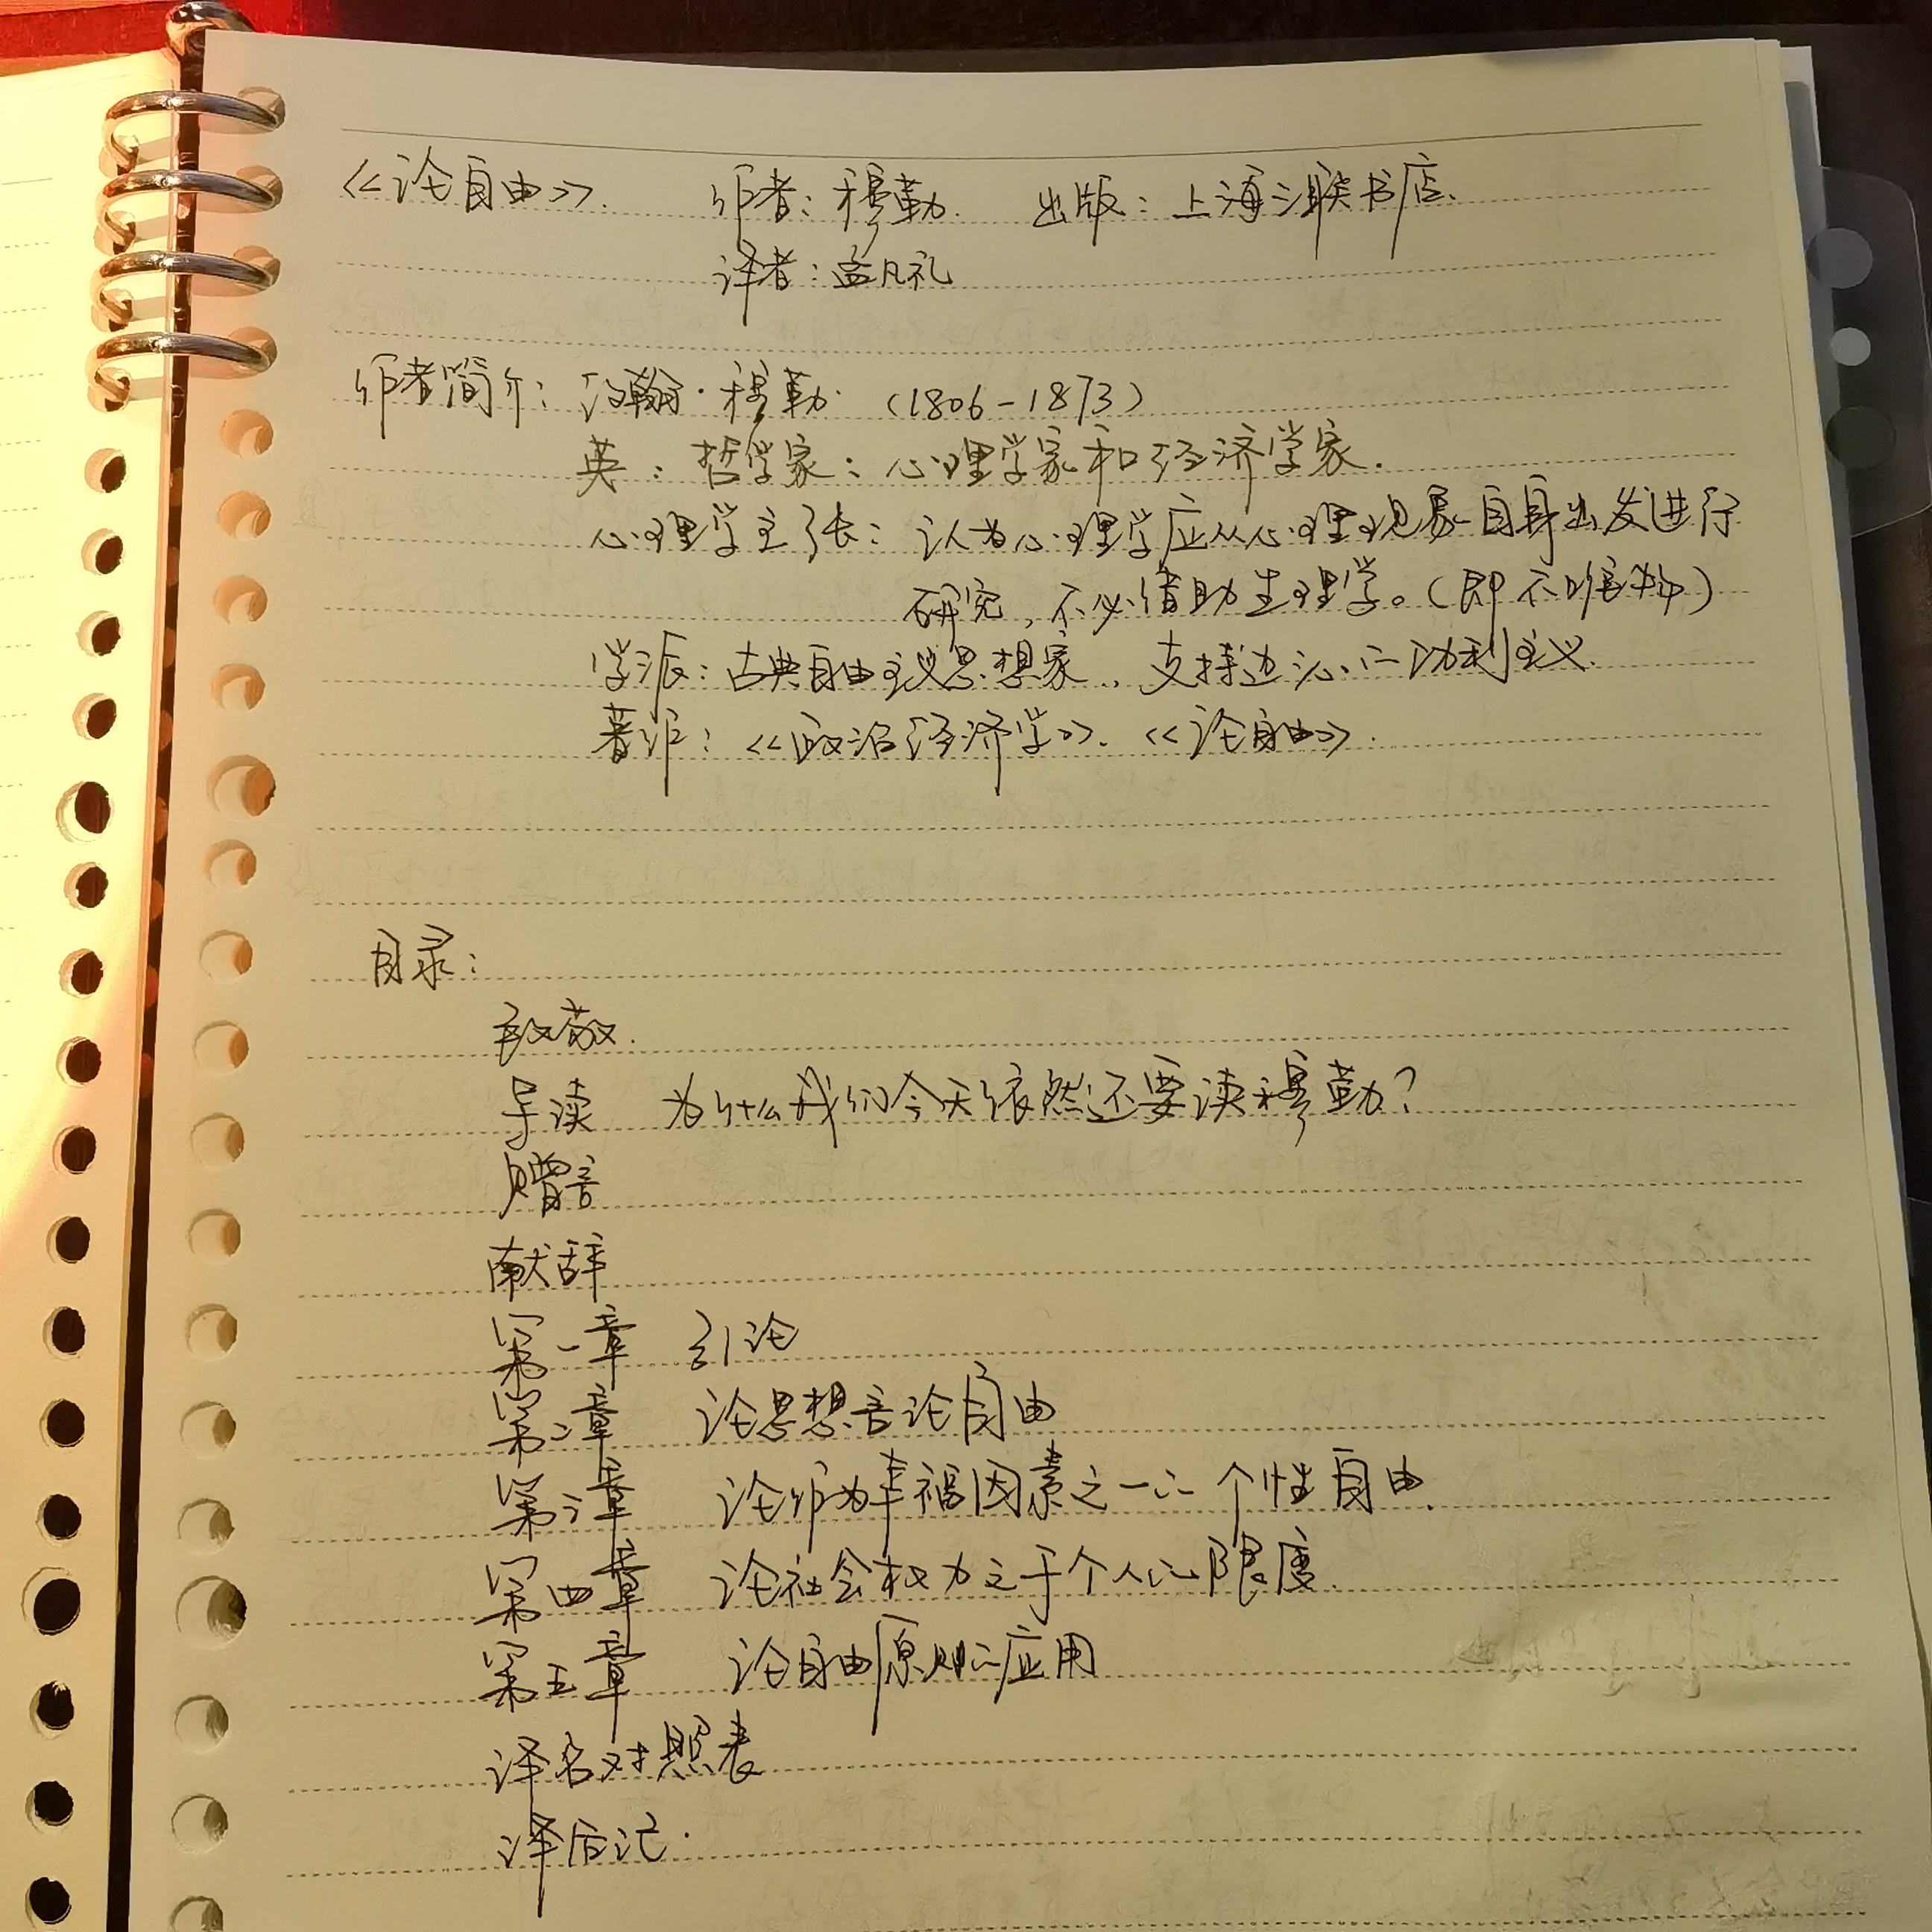 《论自由》. 作者：穆勒. 出版：上海三联书店.
译者：孟凡礼
作者简介：约翰·穆勒.（1806-1873）
英：哲学家：心理学家和经济学家.
心理学主张：认为心理学应从心理现象自身出发进行
研究，不必借助生理学。（即不唯物）
学派：古典自由主义思想家，支持边沁的功利主义.
著作：《政治经济学》.《论自由》.
目录：
致敬.
导读 为什么我们今天依然还要读穆勒？
赠言
献辞
第一章 引论
第二章 论思想言论自由
第三章 论作为幸福因素之一的个性自由.
第四章 论社会权力之于个人的限度.
第五章 论自由原则的应用
译名对照表
译后记.